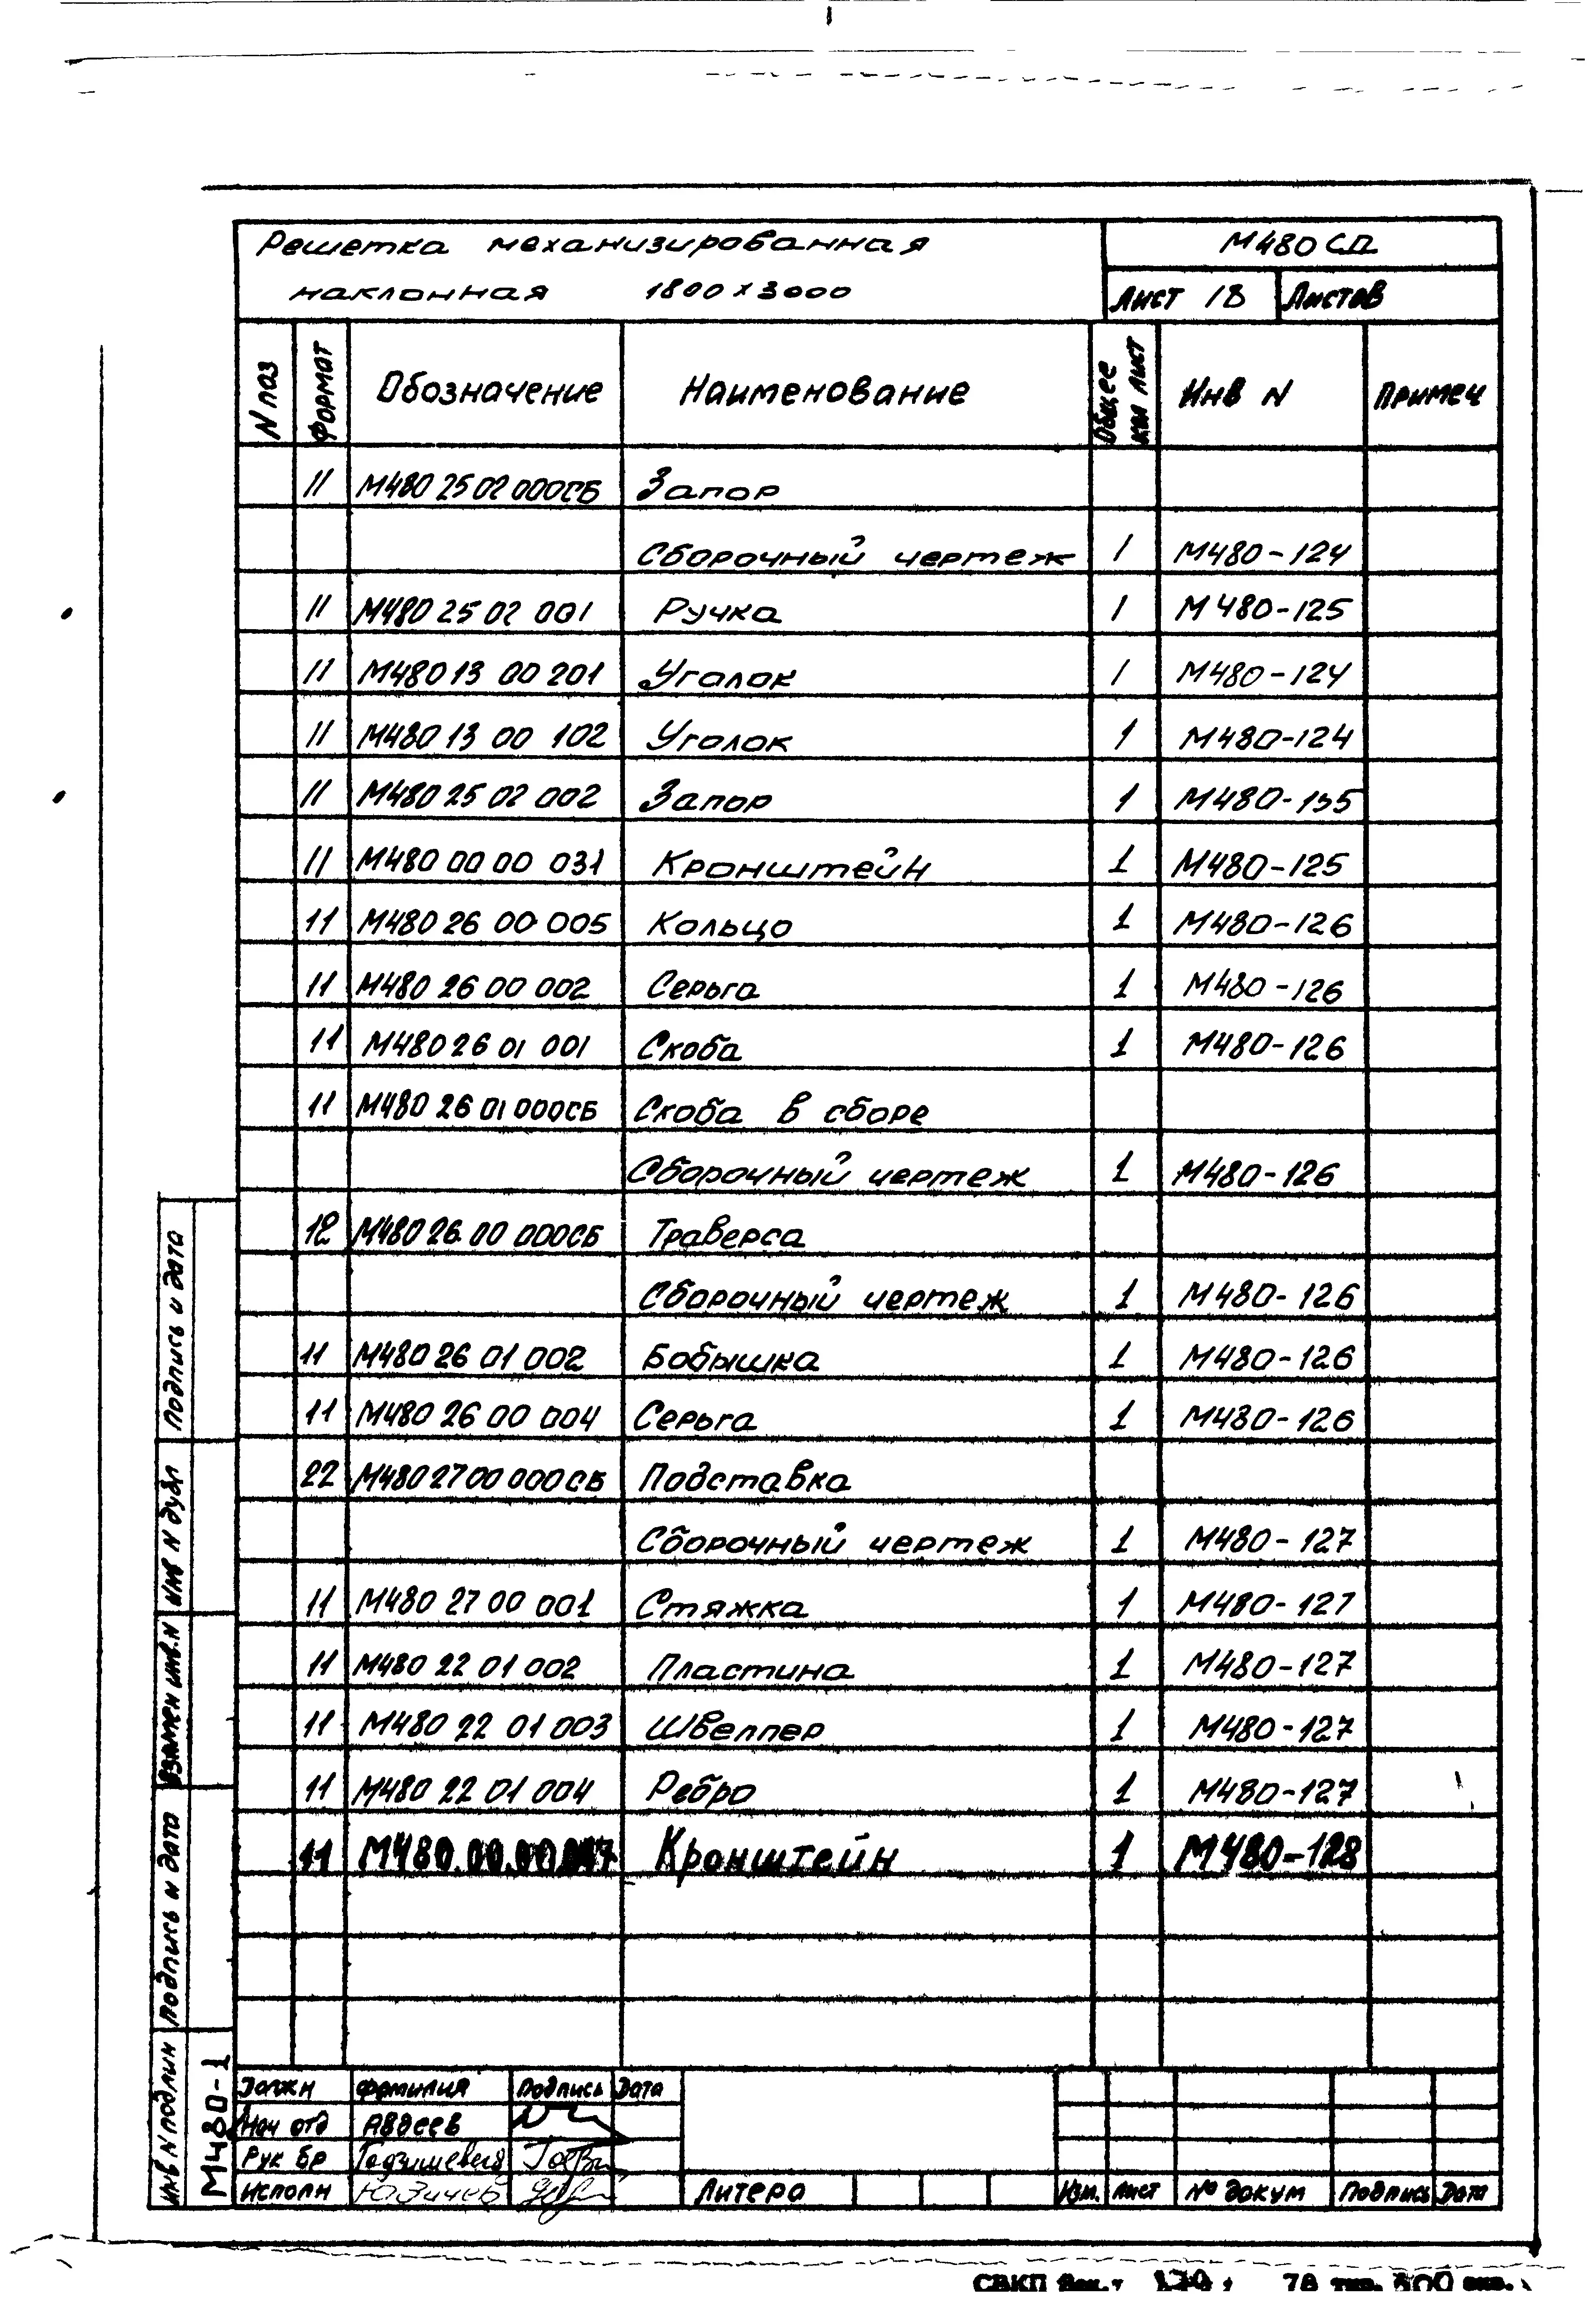 Решетка механизированная
наклонная 1800 х 3000
М480 СД
Лист 18 Листов
N паз Формат Обозначение Наименование Общее кол лист Инв N Примеч
11 М480 25 02 000СБ Запор
Сборочный чертеж 1 М480-124
11 М480 25 02 001 Ручка 1 М480-125
11 М480 13 00 201 Уголок 1 М480-124
11 М480 13 00 102 Уголок 1 М480-124
11 М480 25 02 002 Запор 1
11 М480 00 00 031 Кронштейн 1 М480-125
11 М480 26 00 005 Кольцо 1 М480-126
11 М480 26 00 002 Серьга 1 М480-126
11 М480 26 01 001 Скоба 1 М480-126
11 М480 26 01 000СБ Скоба в сборе
Сборочный чертеж 1 М480-126
12 М480 26 00 000СБ Траверса
Сборочный чертеж 1 М480-126
11 М480 26 01 002 Бобышка 1 М480-126
11 М480 26 00 004 Серьга 1 М480-126
22 М480 27 00 000СБ Подставка
Сборочный чертеж 1 М480-127
11 М480 27 00 001 Стяжка 1 М480-127
11 М480 22 01 002 Пластина 1 М480-127
11 М480 22 01 003 Швеллер 1 М480-127
11 М480 22 01 004 Ребро 1 М480-127
11 Кронштейн 1 М480-128
Подпись и дата
Инв N дубл
Взамен инв. N
Подпись и дата
Инв N подлин
М480-1
Должн Фамилия Подпись Дата
Нач отд Авдеев
Рук бр
Исполн
Литера
Изм. Лист № докум Подпись Дата
СВКП Зак. 78 тир. 500 экз.